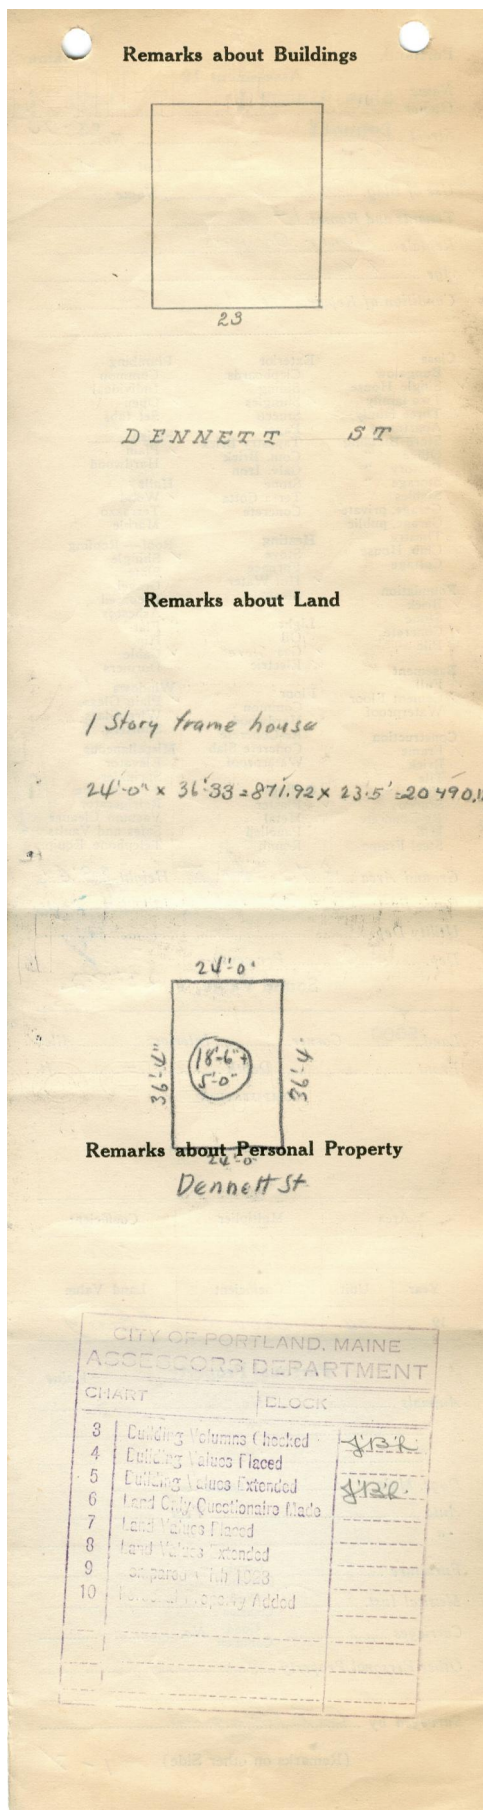 Remarks about Buildings
23
DENNETT ST
Remarks about Land
1 Story frame house
24'-0" x 36'.33 = 871.92 x 23.5' = 20490.
24'-0"
36'-4"
18'-6" +
5'-0"
36'-4"
24'-0"
Remarks about Personal Property
Dennett St
CITY OF PORTLAND, MAINE
ASSESSORS DEPARTMENT
CHART BLOCK
3 Building Volumns Checked J.B.R.
4 Building Values Placed
5 Building Values Extended J.B.R.
6 Land Only Questionaire Made
7 Land Values Placed
8 Land Values Extended
9 Compared With
10 Personal Property Added